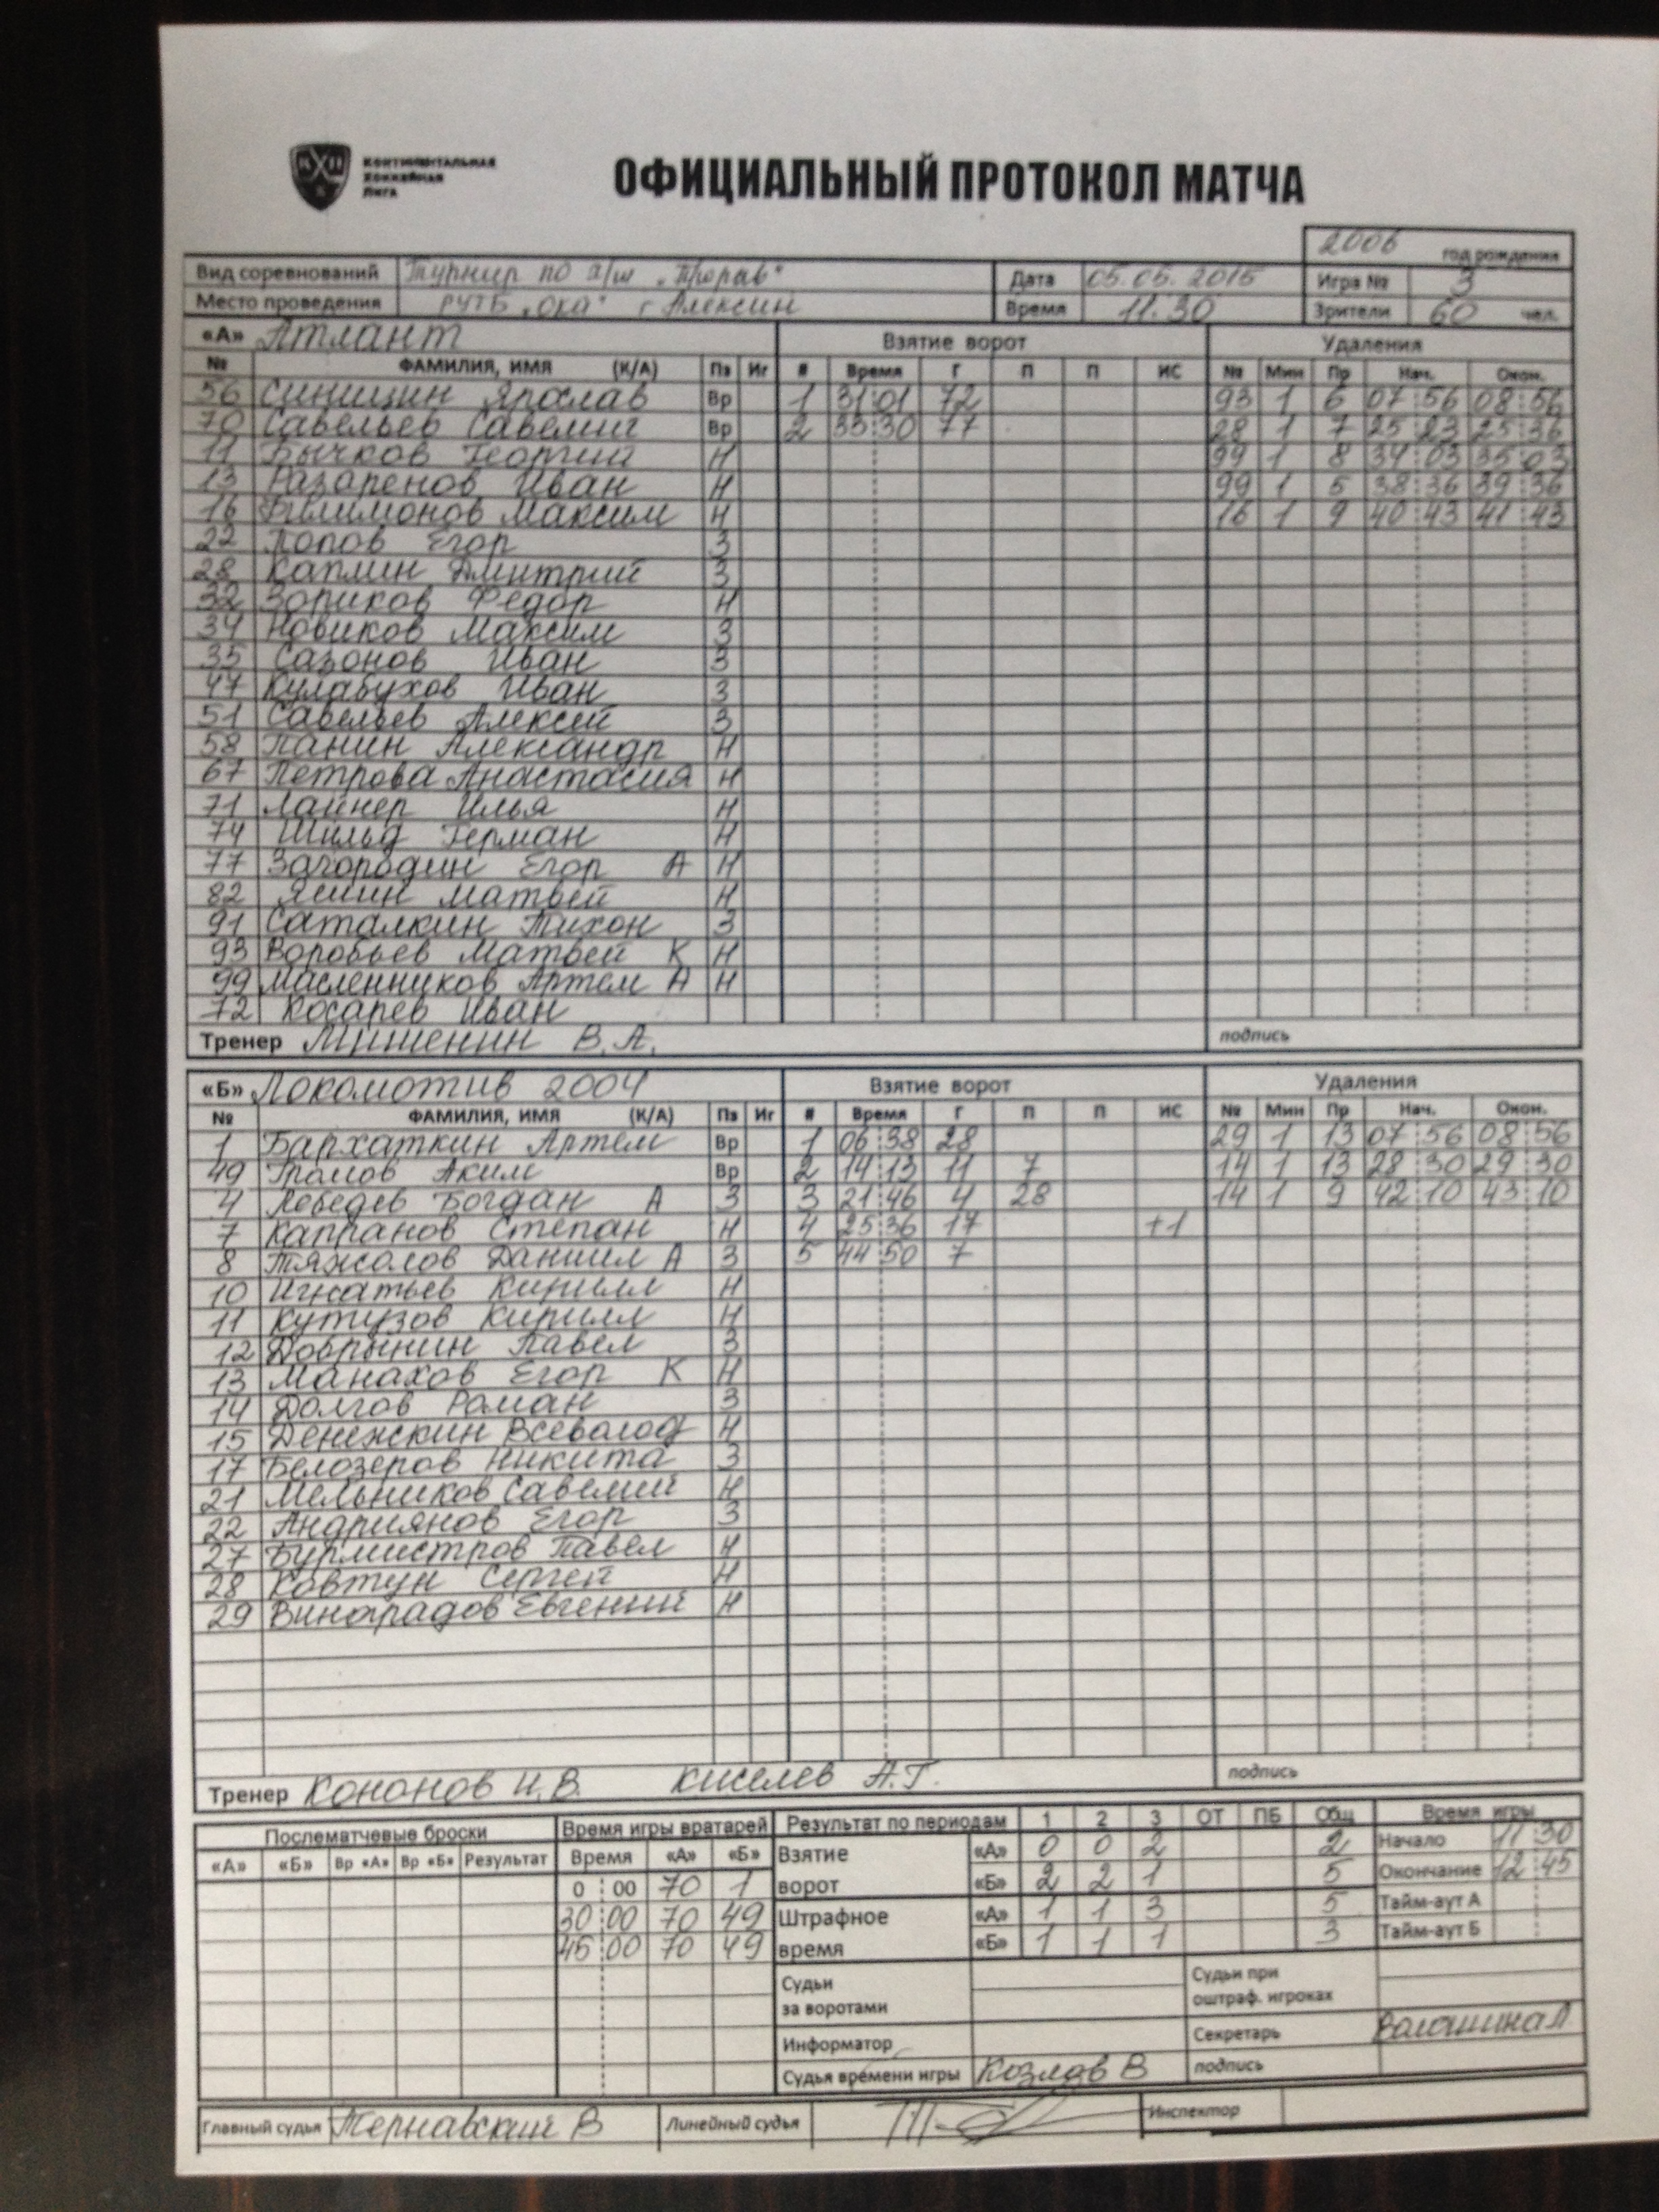 КОНТИНЕНТАЛЬНАЯ
ХОККЕЙНАЯ
ЛИГА
ОФИЦИАЛЬНЫЙ ПРОТОКОЛ МАТЧА
2006 год рождения
Вид соревнований Турнир по х/ш „Прорыв“ Дата 05.05.2015 Игра № 3
Место проведения РУТБ „Ока“ г Алексин Время 11:30 Зрители 60 чел.
«А» Атлант Взятие ворот Удаления
№ ФАМИЛИЯ, ИМЯ (К/А) Пз Иг # Время Г П П ИС № Мин Пр Нач. Окон.
56 Синицин Ярослав Вр 1 31:01 72 93 1 6 07:56 08:56
70 Савельев Савелий Вр 2 33:30 77 28 1 7 25:23 25:36
11 Бычков Георгий Н 99 1 8 34:03 35:03
13 Разаренов Иван Н 99 1 5 38:36 39:36
16 Филимонов Максим Н 16 1 9 40:43 41:43
22 Попов Егор З
28 Каплин Дмитрий З
32 Зориков Федор Н
34 Новиков Максим З
35 Сазонов Иван З
47 Кулабухов Иван З
51 Савельев Алексей З
58 Панин Александр Н
67 Петрова Анастасия Н
71 Лайнер Илья Н
74 Шильд Герман Н
77 Загородин Егор А Н
82 Яшин Матвей Н
91 Саталкин Тихон З
93 Воробьев Матвей К Н
99 Масленников Артем А Н
72 Косарев Иван
Тренер Мишенин В.А. подпись
«Б» Локомотив 2004 Взятие ворот Удаления
№ ФАМИЛИЯ, ИМЯ (К/А) Пз Иг # Время Г П П ИС № Мин Пр Нач. Окон.
1 Бархаткин Артем Вр 1 06:38 28 29 1 13 07:56 08:56
49 Громов Аким Вр 2 14:13 11 7 14 1 13 28:30 29:30
4 Лебедев Богдан А З 3 21:46 4 28 14 1 9 42:10 43:10
7 Капранов Степан Н 4 25:36 17 +1
8 Тяжолов Даниил А З 5 44:50 7
10 Игнатьев Кирилл Н
11 Кутузов Кирилл Н
12 Добрынин Павел З
13 Манахов Егор К Н
14 Долгов Роман З
15 Денежкин Всеволод Н
17 Белозеров Никита З
21 Мельников Савелий Н
22 Андриянов Егор З
27 Бурмистров Павел Н
28 Ковтун Сергей Н
29 Винарадов Евгений Н
Тренер Кононов И.В. Киселев А.Г. подпись
Послематчевые броски Время игры вратарей Результат по периодам 1 2 3 ОТ ПБ Общ Время игры
«А» «Б» Вр «А» Вр «Б» Результат Время «А» «Б» Взятие ворот «А» 0 0 2 2 Начало 11:30
0:00 70 1 «Б» 2 2 1 5 Окончание 12:45
30:00 70 49 Штрафное время «А» 1 1 3 5 Тайм-аут А
45:00 70 49 «Б» 1 1 1 3 Тайм-аут Б
Судьи за воротами Судьи при оштраф. игроках
Информатор Секретарь Волошина Л
Судья времени игры Козлов В подпись
Главный судья Тернавский В Линейный судья Инспектор